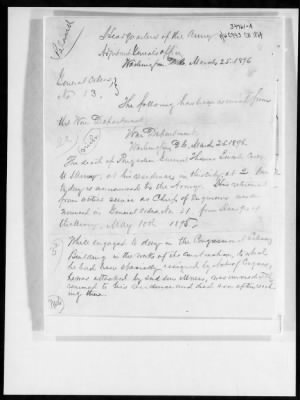 34961-A
Headquarters of the Army,
Adjutant General's Office,
Washington D.C. March 25. 1896
General Orders,
No 13.
The following has been received from
the War Department:
War Department,
Washington D.C. March 25 1896.
The death of Brigadier General Thomas Lincoln Casey
U.S. Army, at his residence in this city, at
to day is announced to the Army. He retired
from active service as Chief of Engineers
in General Orders No. 31 from
the Army, May 10th 1895
While engaged to day in the Congressional Library
Building in the works of the construction, to which
he had been specially assigned by Act of Congress,
he was attacked by sudden illness, was immediately
conveyed to his residence and died soon after